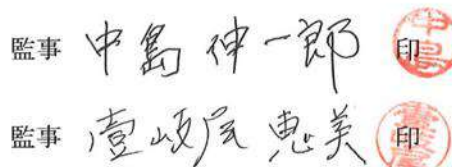 監事 中島 伸一郎 印
監事 壹岐尾 恵美 印